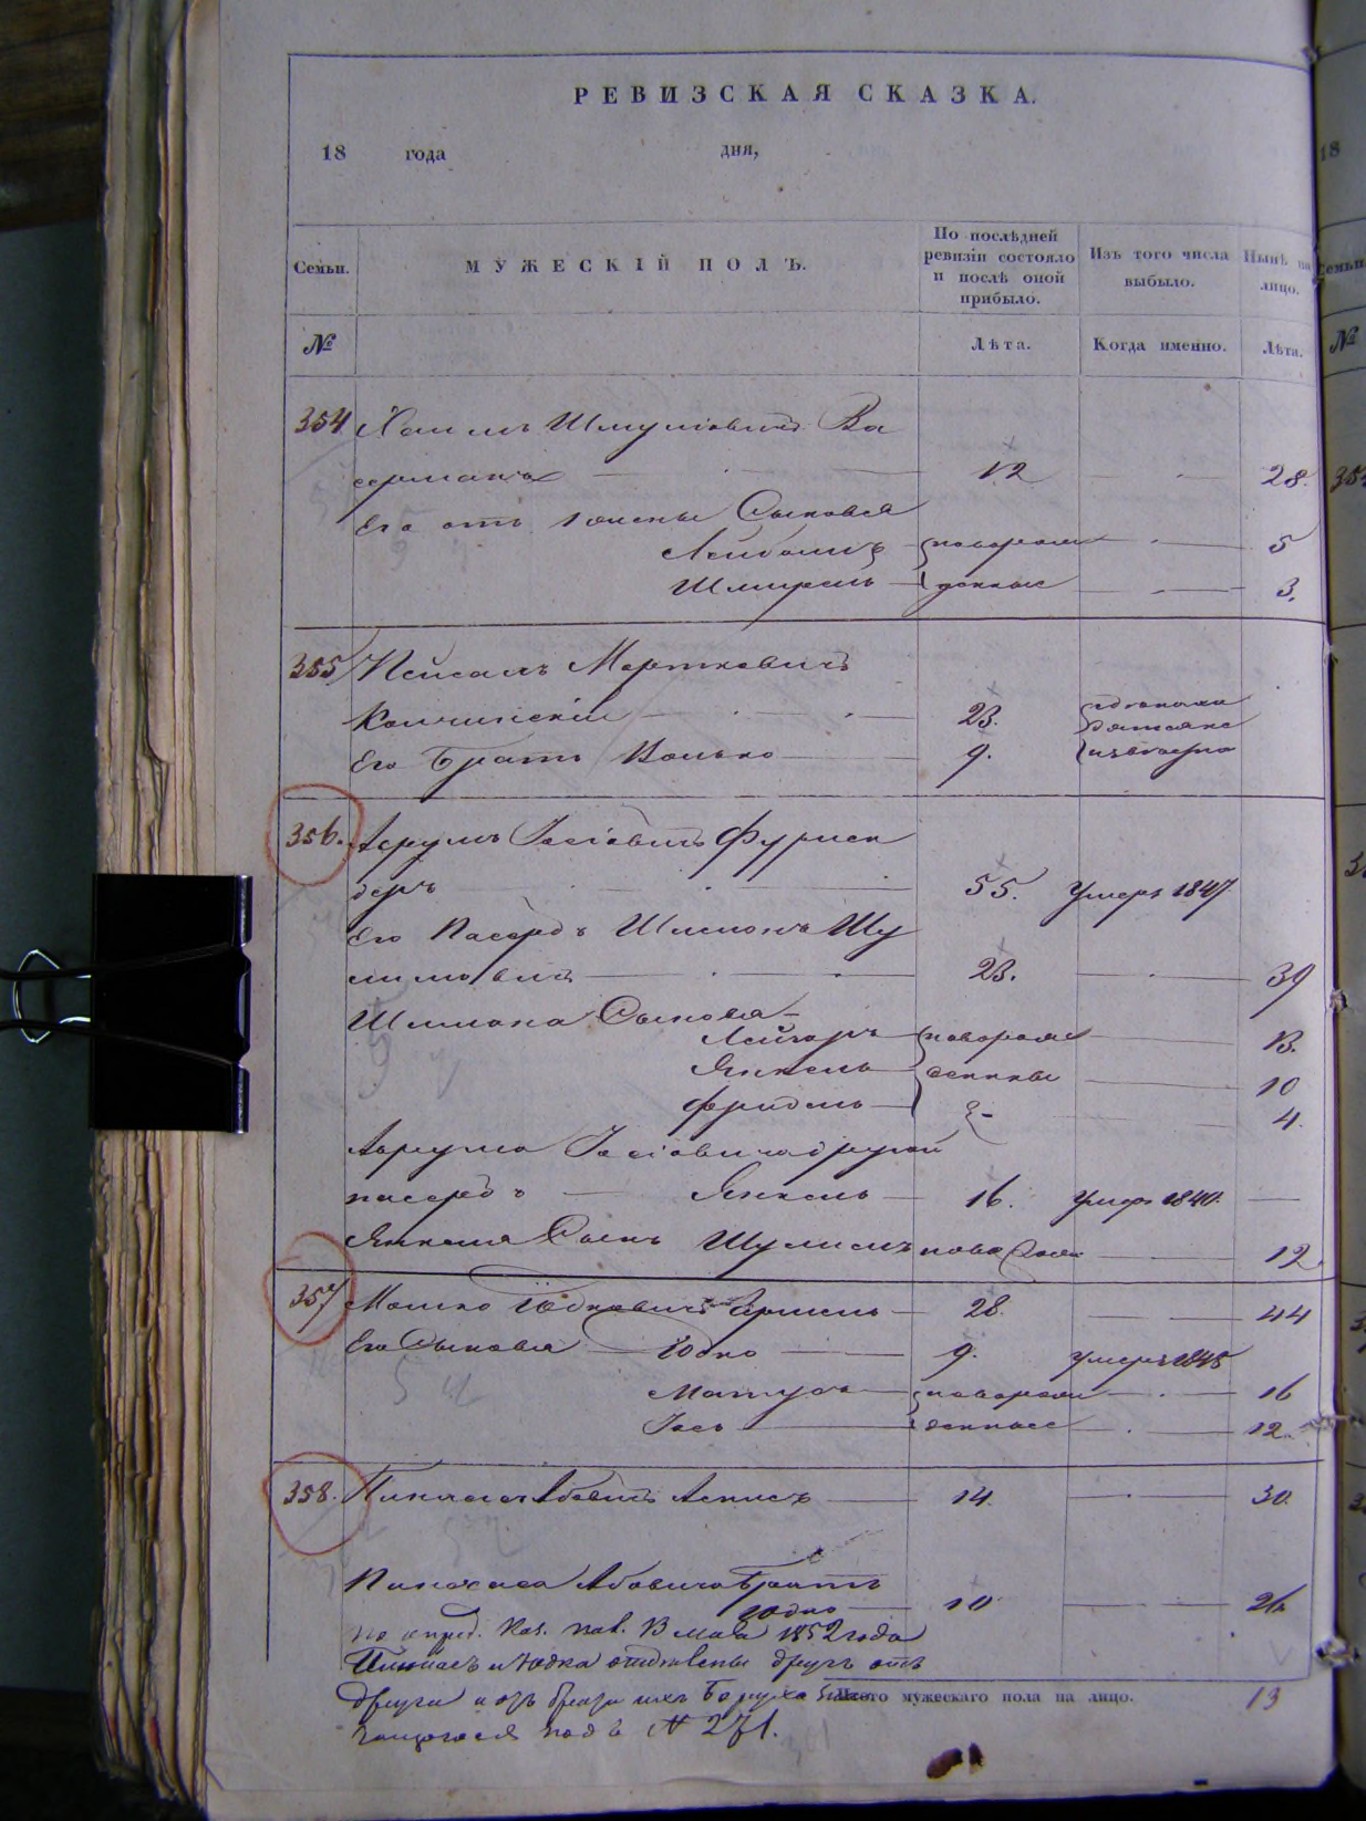 РЕВИЗСКАЯ СКАЗКА.
18 года дня,
Семьи. МУЖЕСКІЙ ПОЛЪ. По послѣдней ревизіи состояло и послѣ оной прибыло. Изъ того числа выбыло. Нынѣ на лицо.
№ Лѣта. Когда именно. Лѣта.
354 Хаимъ Шмуліовичъ Ва
серманъ 12 28.
Его отъ 1 жены Сыновья
Лейбишъ новорож 5
Шмерель денные 3.
355 Пейсахъ Мортковичъ
23.
Его братъ Волько 9. неизвестно
356. Аврумъ Іосіовичъ Фурман
деръ 55. Умеръ 1847
Его Пасербъ Шимонъ Шу
лимовичъ 23. 39
Шимона Сыновья
Лейзоръ новорож 13.
Янкель денные 10
Фридель 4.
Аврума Іосіовича другой
пасербъ Янкель 16. Умеръ 1840.
Янкеля Сынъ Шулимъ новорож 12.
357 Мошко Юдковичъ 28. 44
Его Сыновья Юдко 9. умеръ 1845
Матусъ новорож 16
Іось денные 12.
358. Пинхасъ Абовичъ Асписъ 14. 30.
Пинхаса Абовича братъ
Юдко 10 26
по опред. Каз. пал. 13 мая 1852 года
Пинхасъ и Юдка отделены другъ отъ
друга и отъ брата ихъ Боруха
под № 271.
Итого мужескаго пола на лицо. 13